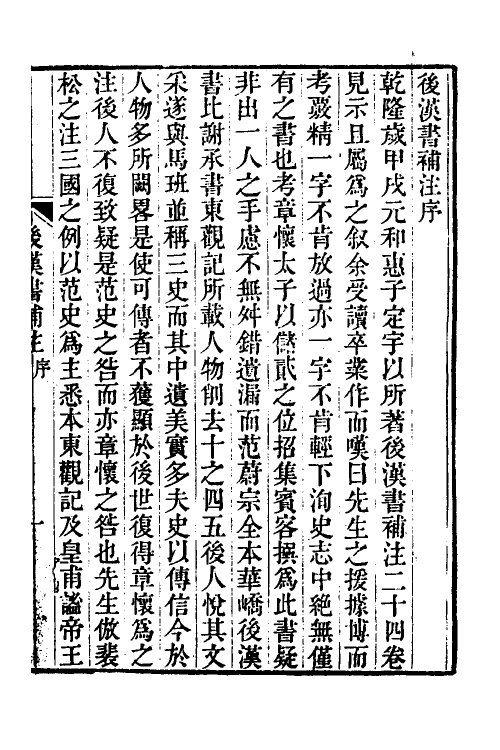 後漢書補注序
乾隆歲甲戌元和惠子定宇以所著後漢書補注二十四卷
見示且屬爲之叙余受讀卒業作而嘆曰先生之援據博而
考覈精一字不肯放過亦一字不肯輕下洵史志中絶無僅
有之書也考章懷太子以儲貳之位招集賓客撰爲此書疑
非出一人之手慮不無舛錯遺漏而范蔚宗全本華嶠後漢
書比謝承書東觀記所載人物削去十之四五後人悅其文
采遂與馬班並稱三史而其中遺美實多夫史以傳信今於
人物多所闕畧是使可傳者不獲顯於後世復得章懷爲之
注後人不復致疑是范史之咎而亦章懷之咎也先生倣裴
松之注三國之例以范史爲主悉本東觀記及皇甫謐帝王
後漢書補注 序 一